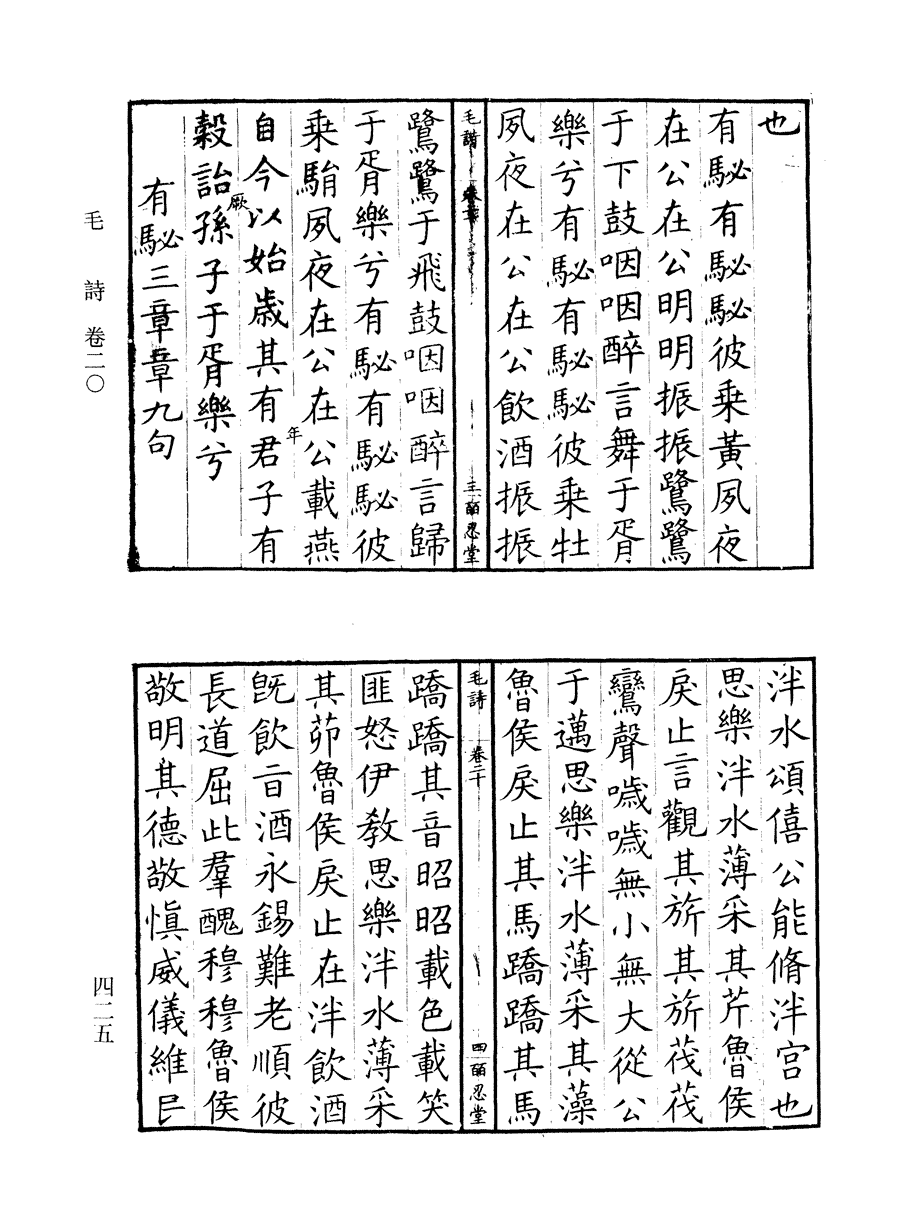 也
有駜有駜駜彼乗黃夙夜
在公在公明明振振鷺鷺
于下鼓咽咽醉言舞于胥
樂兮有駜有駜駜彼乗牡
夙夜在公在公飲酒振振
毛詩 三 皕忍堂
鷺鷺于飛鼓咽咽醉言歸
于胥樂兮有駜有駜駜彼
乗駽夙夜在公在公載燕
自今以始歳其有君子有
年
糓詒孫子于胥樂兮
厥
有駜三章章九句
泮水頌僖公能脩泮宮也
思樂泮水薄采其芹魯侯
戾止言觀其旂其旂茷茷
鸞聲噦噦無小無大從公
于邁思樂泮水薄采其藻
魯侯戾止其馬蹻蹻其馬
毛詩 卷二十 四 皕忍堂
蹻蹻其音昭昭載色載笑
匪怒伊教思樂泮水薄采
其茆魯侯戾止在泮飲酒
旣飲旨酒永錫難老順彼
長道屈此羣醜穆穆魯侯
敬明其德敬愼威儀維民
毛詩 卷二〇
四二五